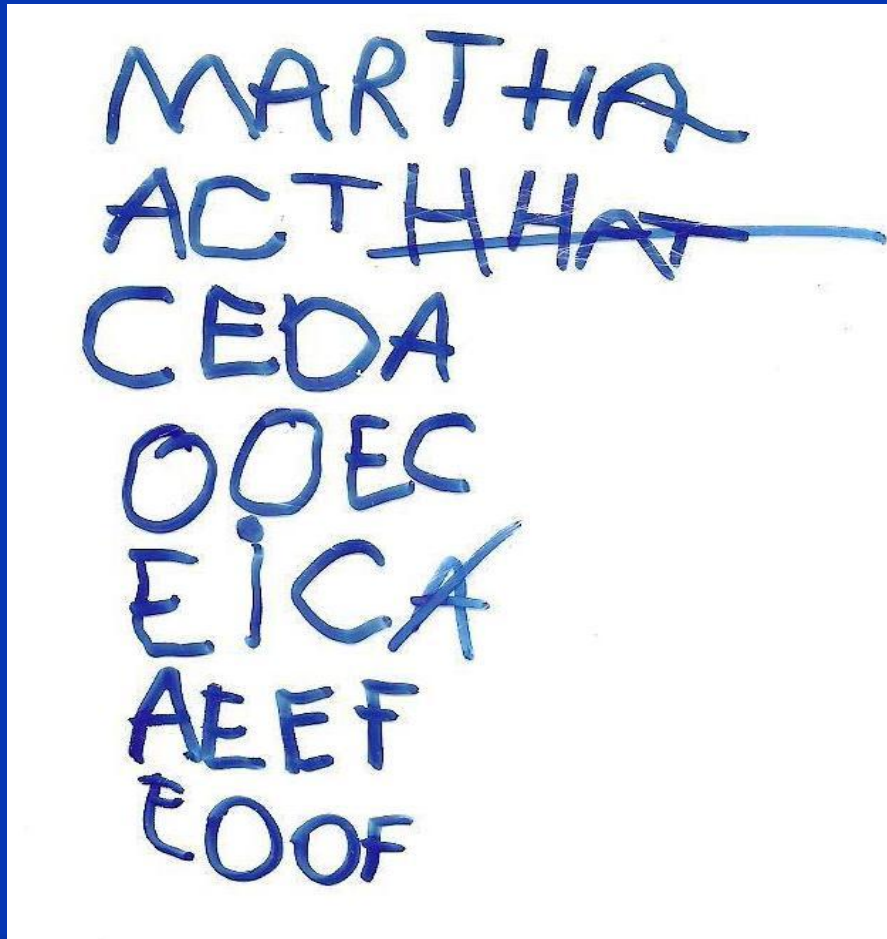 MARTHA
ACTHHAT
CEDA
OOEC
EiCA
AEEF
EOOF